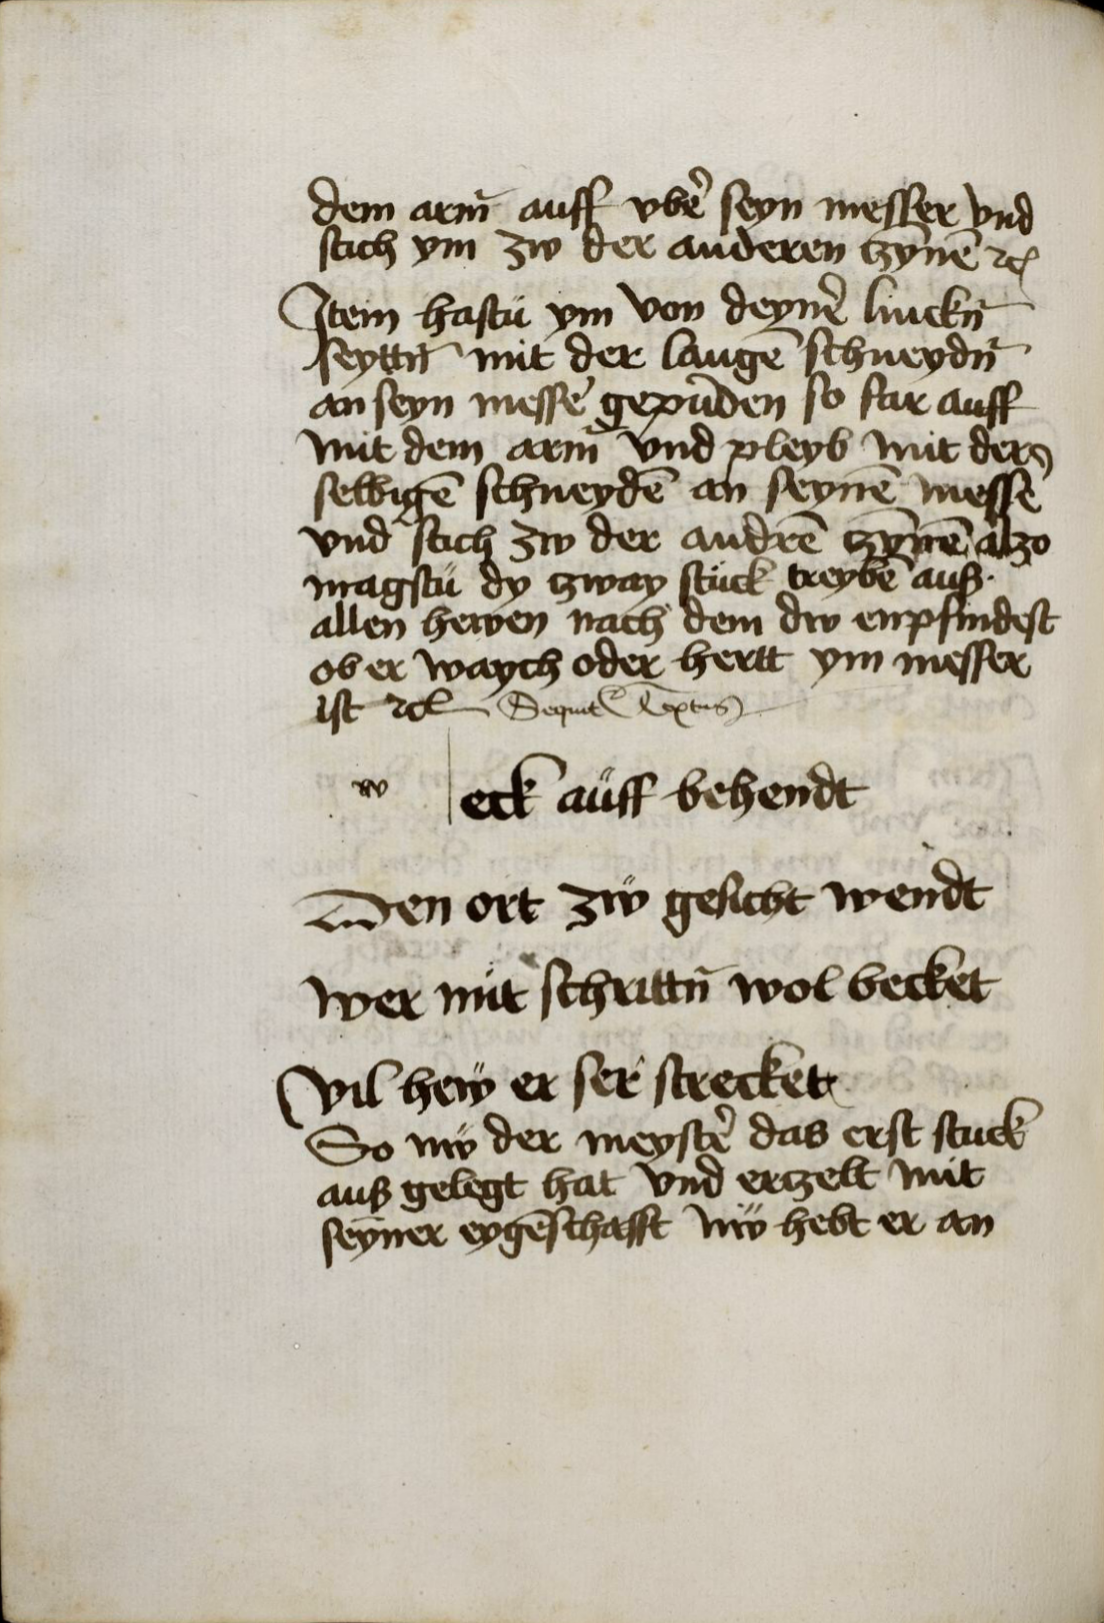 dem arm̄ auff vbẽ seyn messer vnd
stich ym zw der anderen tzynē ⁊c̃
Item hastü ym von deynẽ linckn̄
seyttn̄ mit der langē schneydn̄
an seyn messẽ gepūden so far auff
mit dem arm̄ vnd pleyb mit der
selbigē schneydē an seynē messẽ
vnd stich zw der andrē tzynnē alzo
magstü dy zway stück treybē auß
allen hewen nach dem dw enpfindest
ob er waych oder hertt ym messer
ist ⁊c̃ Sequit᷑ Textus
w eck aüff behendt
Den ort zẅ gesicht wendt
wer mit schrittn̄ wol becket
vil heẅ er ser strecket
So nẅ der meystẽ das erst stuck
auß gelegt hat vnd ertzelt mit
seyner eygēschafft nẅ hebt er an